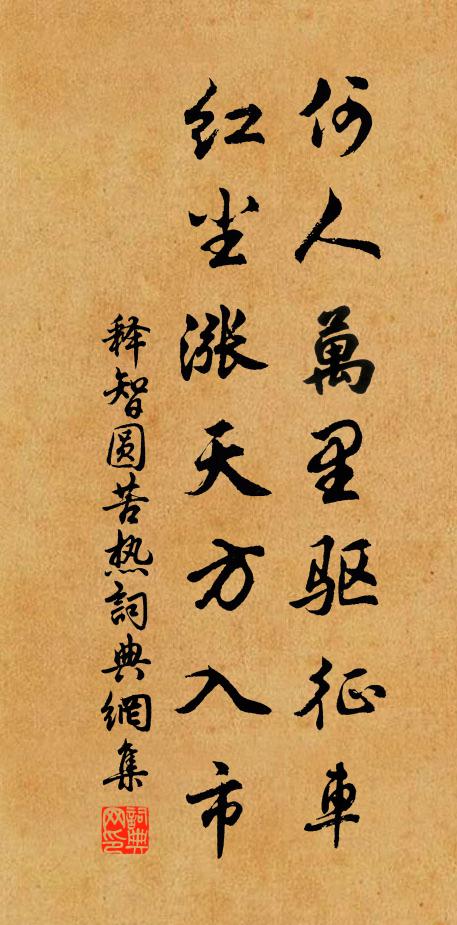 何人萬里驱征車
红尘漲天方入市
释智圆苦热詞典網集
詞典网印